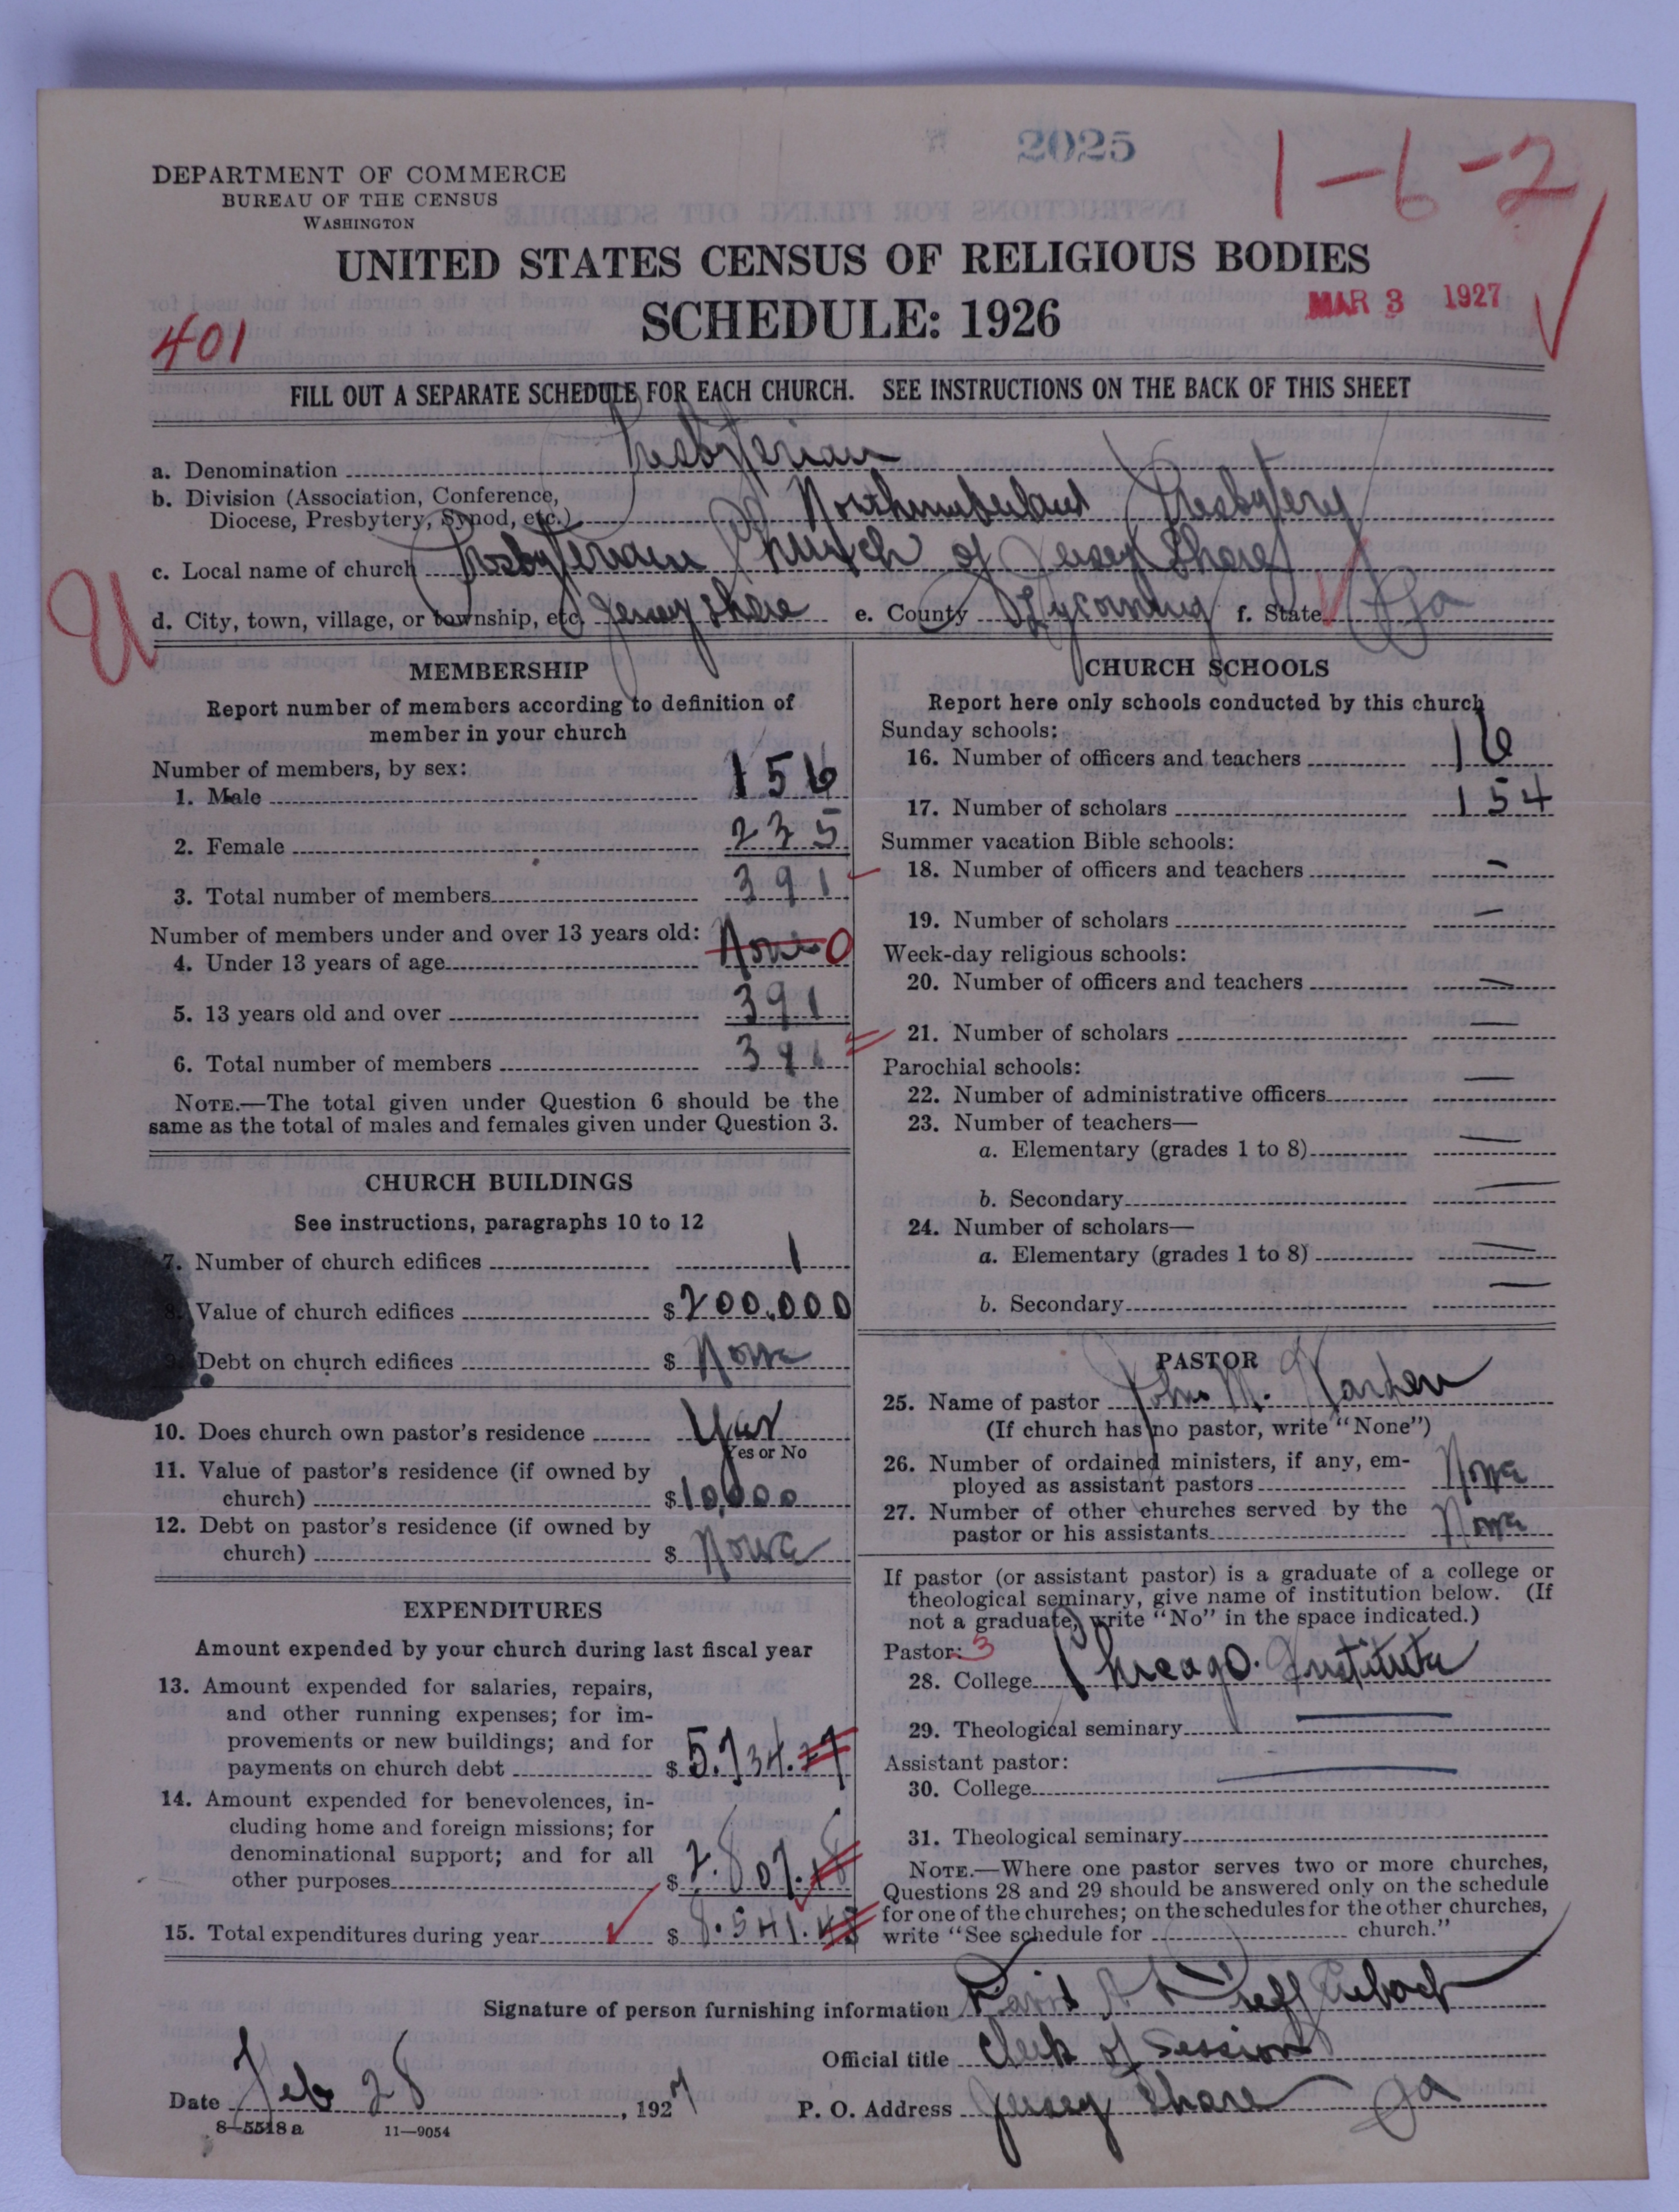 2025
1-6-2
DEPARTMENT OF COMMERCE
BUREAU OF THE CENSUS
WASHINGTON
UNITED STATES CENSUS OF RELIGIOUS BODIES
SCHEDULE: 1926
MAR 3 1927
401
FILL OUT A SEPARATE SCHEDULE FOR EACH CHURCH. SEE INSTRUCTIONS ON THE BACK OF THIS SHEET
a. Denomination Presbyterian
b. Division (Association, Conference,
Diocese, Presbytery, Synod, etc.) Northumberland Presbytery
c. Local name of church Presbyterian Church of Jersey Shore
d. City, town, village, or township, etc. Jersey Shore e. County Lycoming f. State Pa
U
MEMBERSHIP
Report number of members according to definition of
member in your church
Number of members, by sex:
1. Male 156
2. Female 235
3. Total number of members 391
Number of members under and over 13 years old:
4. Under 13 years of age None 0
5. 13 years old and over 391
6. Total number of members 391
NOTE.—The total given under Question 6 should be the
same as the total of males and females given under Question 3.
CHURCH BUILDINGS
See instructions, paragraphs 10 to 12
7. Number of church edifices 1
8. Value of church edifices $200,000
9. Debt on church edifices $ None
10. Does church own pastor's residence Yes
Yes or No
11. Value of pastor's residence (if owned by
church) $10,000
12. Debt on pastor's residence (if owned by
church) $ None
EXPENDITURES
Amount expended by your church during last fiscal year
13. Amount expended for salaries, repairs,
and other running expenses; for im-
provements or new buildings; and for
payments on church debt $5,734.
14. Amount expended for benevolences, in-
cluding home and foreign missions; for
denominational support; and for all
other purposes $2.807.18
15. Total expenditures during year $8.541.
CHURCH SCHOOLS
Report here only schools conducted by this church
Sunday schools:
16. Number of officers and teachers 16
17. Number of scholars 154
Summer vacation Bible schools:
18. Number of officers and teachers —
19. Number of scholars —
Week-day religious schools:
20. Number of officers and teachers —
21. Number of scholars —
Parochial schools:
22. Number of administrative officers —
23. Number of teachers—
a. Elementary (grades 1 to 8) —
b. Secondary —
24. Number of scholars—
a. Elementary (grades 1 to 8) —
b. Secondary —
PASTOR
25. Name of pastor John M. Harden
(If church has no pastor, write "None")
26. Number of ordained ministers, if any, em-
ployed as assistant pastors None
27. Number of other churches served by the
pastor or his assistants None
If pastor (or assistant pastor) is a graduate of a college or
theological seminary, give name of institution below. (If
not a graduate, write "No" in the space indicated.)
Pastor: 3
28. College Chicago. Institute
29. Theological seminary —
Assistant pastor:
30. College —
31. Theological seminary
NOTE.—Where one pastor serves two or more churches,
Questions 28 and 29 should be answered only on the schedule
for one of the churches; on the schedules for the other churches,
write "See schedule for church."
Signature of person furnishing information David
Official title Clerk of Session
Date Feb 28, 1927
P. O. Address Jersey Shore Pa
8-5518 a 11-9054